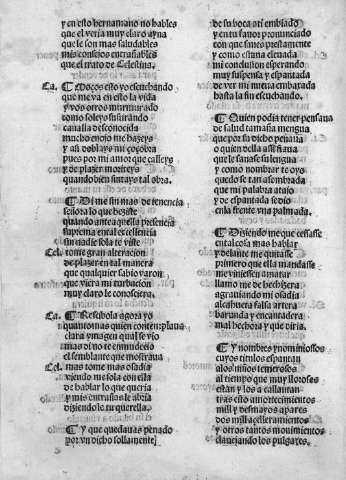 y en esto hermano no hables
que el vería muy claro ayna
que le son mas saludables
mis consejos entrañables
que el trato de Celestina.
Ca. ¶ Moços esto yo escuchando
que me va en esto la vida
y vos otros murmurado
como soleys susurrando
canalla desconocida
mucho enojo me hazeys
y añ doblays mi çoçobra
pues por mi amor que calleys
y de plazer morireys
quando bien sintays tal obra.
¶ Di me sin mas detenencia
señora lo que heziste
quando ante aquella presencia
suprema en tal excellencia
sin nadie sola te viste
Cel. tome gran alteracion
de plazer en tal manera
que qualquier sabio varon
que viera mi turbacion
muy claro lo conosciera.
Ca. ¶ Rescibola agora yo
quanto mas quien
clara ymagen qual se vio
mas di no te enmudecio
el semblante que mostraua
Cel. mas tome mas osadia
viendo me sola con ella
de hablar lo que queria
y mis entrañas le abria
diziendolo tu querella.
¶ Y que quedaua penado
por vn dicho sollamente
de su boca así embiado
y en tu fauor pronunciado
con que sanes prestamente
y como estuua eleuada
mi conclusion esperando
muy suspensa y espantada
de ver mi nueua embaxada
hasta la fin escuchando.
¶ Quien podia tener pensaua
de salud tamaña mengua
que por su dicho penaua
o quien della assi staua
que le sanasse su lengua
y como nombrar te oyo
quedose tan asombrada
que mi palabra atajo
y de espantada se dio
en la frente vna palmada.
¶ Diziendo me que cessasse
en tal cosa mas hablar
y delante me quitasse
primero que ella mandasse
me viniessen a matar
llamo me de hechizera
agrauiando mi osadia
alcahueta falsa artera
barbuda y encantadera
mal hechora y que diria.
¶ Y nombres ynominiossos
cuyos titulos espantan
alos niños temerosos
al tiempo que muy llorosos
estan y los acallantan
tras esto amortecimientos
mill y desmayos apartes
dos mill açelleramientos
y otros tantos mouimientos
clauejando los pulgares.